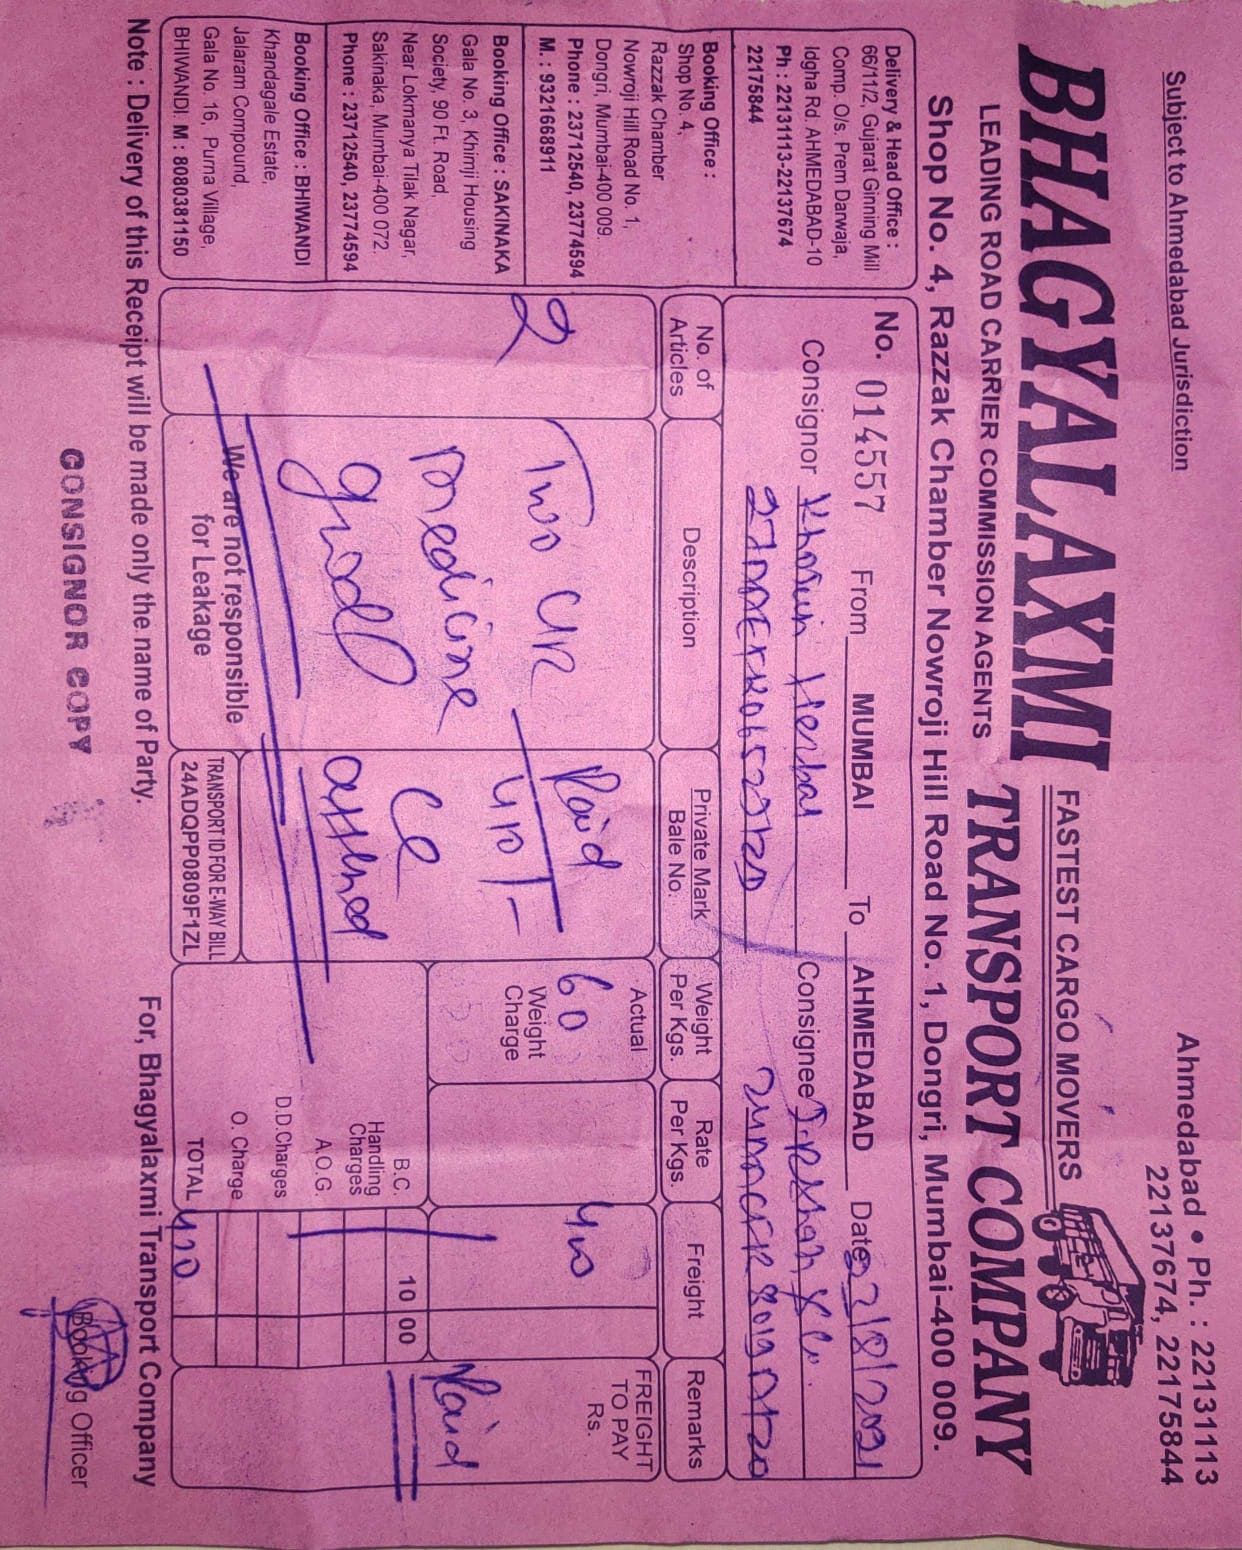 Subject to Ahmedabad Jurisdiction
Ahmedabad • Ph. : 22131113
22137674, 22175844
BHAGYALAXMI
FASTEST CARGO MOVERS
LEADING ROAD CARRIER COMMISSION AGENTS
TRANSPORT COMPANY
Shop No. 4, Razzak Chamber Nowroji Hill Road No. 1, Dongri, Mumbai-400 009.
Delivery & Head Office :
66/11/2, Gujarat Ginning Mill
Comp. O/s. Prem Darwaja,
Idgha Rd. AHMEDABAD-10
Ph : 22131113-22137674
22175844
Booking Office :
Shop No. 4,
Razzak Chamber
Nowroji Hill Road No. 1,
Dongri, Mumbai-400 009.
Phone : 23712540, 23774594
M. : 9321668911
Booking Office : SAKINAKA
Gala No. 3, Khimji Housing
Society, 90 Ft. Road,
Near Lokmanya Tilak Nagar,
Sakinaka, Mumbai-400 072.
Phone : 23712540, 23774594
Booking Office : BHIWANDI
Khandagale Estate,
Jalaram Compound,
Gala No. 16, Purna Village,
BHIWANDI. M : 8080381150
No. 014557 From MUMBAI To AHMEDABAD Date 02/8/2021
Consignor Herbal Consignee
No. of Articles
Description
Private Mark
Bale No.
Weight Per Kgs.
Rate Per Kgs.
Freight
Remarks
2
Two
medicine
good
Paid
410/-
Actual
60
Weight Charge
400
FREIGHT TO PAY Rs.
Paid
B.C. 10 00
Handling Charges
A.O.G.
D.D.Charges
O. Charge
TOTAL 410
We are not responsible
for Leakage
TRANSPORT ID FOR E-WAY BILL
24ADQPP0809F1ZL
Note : Delivery of this Receipt will be made only the name of Party.
For, Bhagyalaxmi Transport Company
CONSIGNOR COPY
Booking Officer